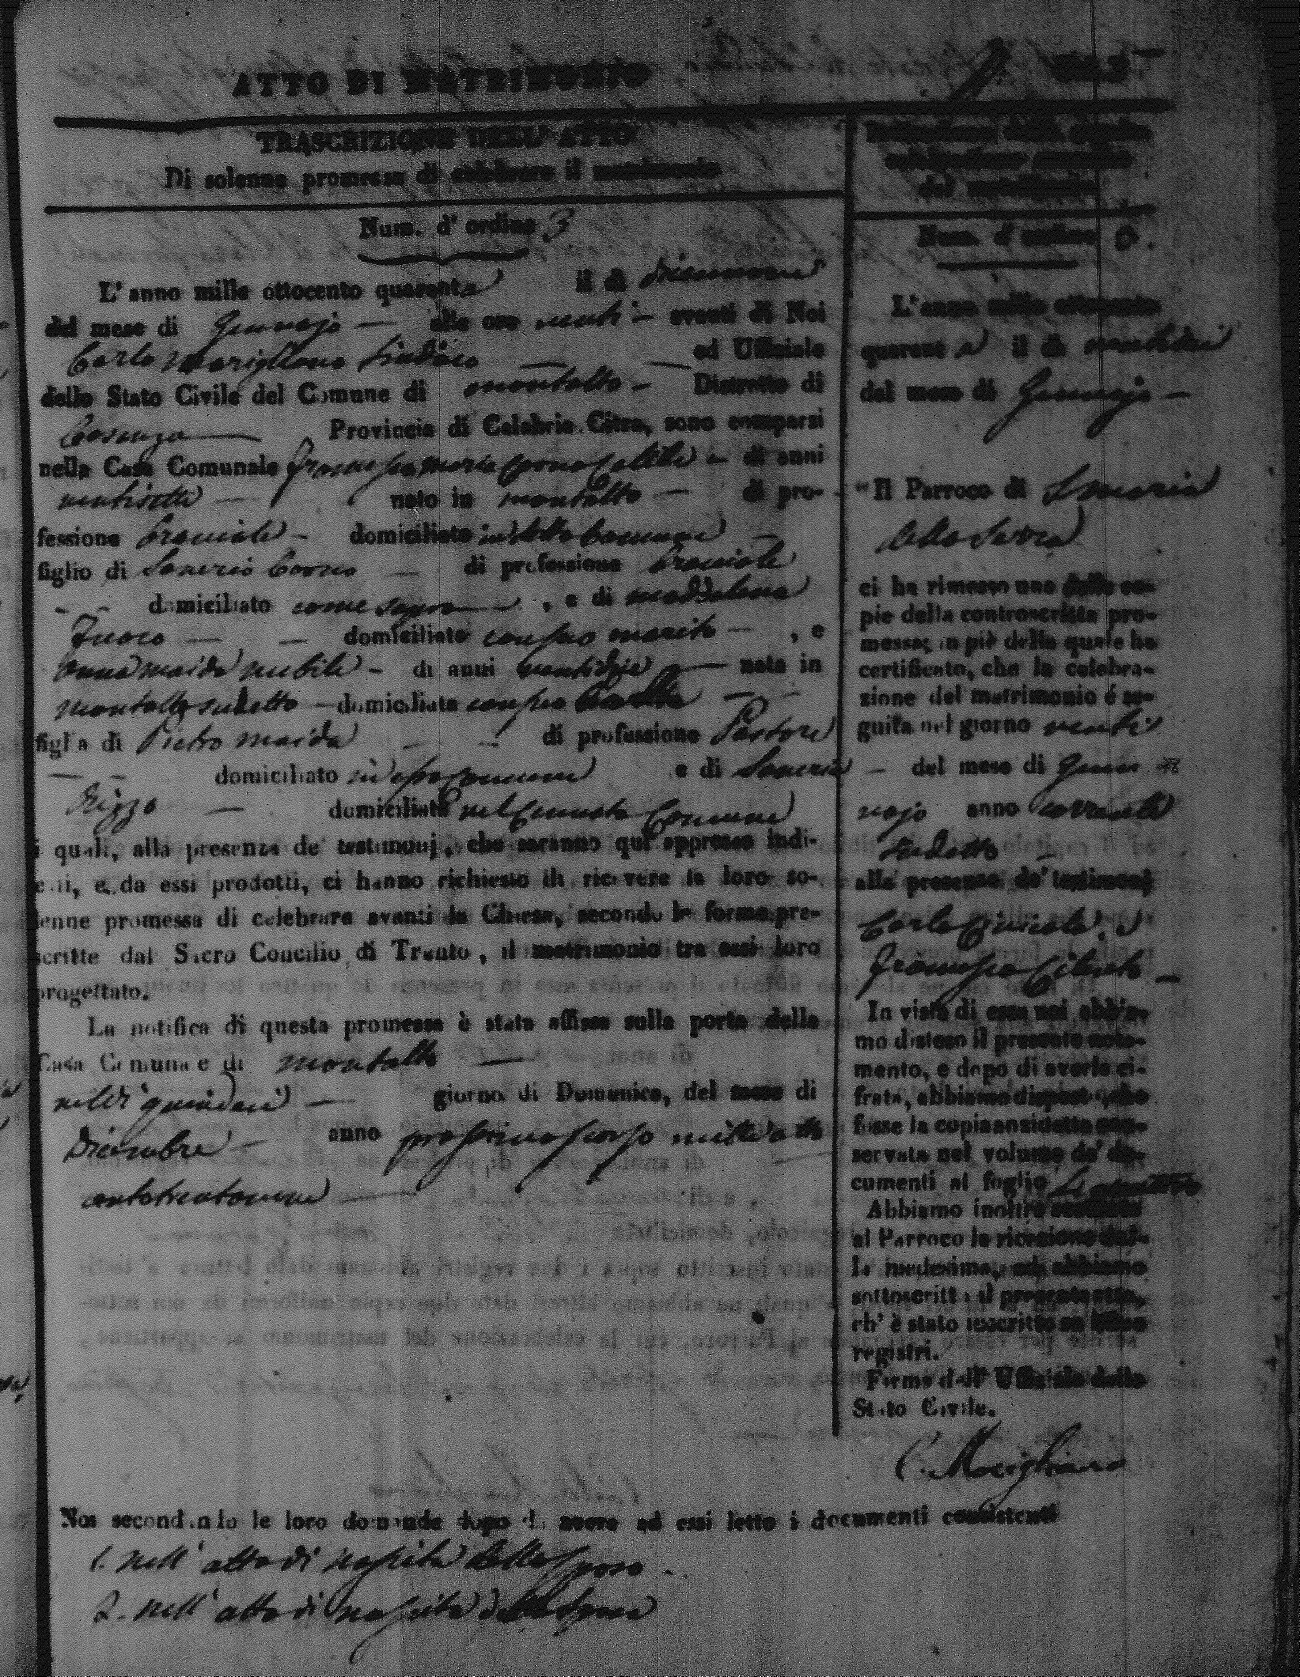 ATTO DI MATRIMONIO
TRASCRIZIONE DELL' ATTO
Di solenne promessa di celebrare il matrimonio
Num. d' ordine 3
L' anno mille ottocento quaranta il dì diecinnove
del mese di Gennajo alle ore venti avanti di Noi
Carlo Marigliano Sindaco ed Uffiziale
dello Stato Civile del Comune di Montalto Distretto di
Cosenza Provincia di Calabria Citra, sono comparsi
nella Casa Comunale Francesco Maria celibe di anni
ventisette nato in Montalto di pro-
fessione domiciliato in detto Comune
figlio di Saverio di professione
domiciliato come sopra, e di Maddalena
Fuoco domiciliata con suo marito, e
Anna Maida nubile di anni nata in
Montalto sudetto domiciliata con suo
figlia di Pietro Maida di professione Pastore
domiciliato in esso Comune e di Saveria
Rizzo domiciliata nel Comune
i quali, alla presenza de' testimonj, che saranno qui appresso indi-
cati, e da essi prodotti, ci hanno richiesto di ricevere la loro so-
lenne promessa di celebrare avanti la Chiesa, secondo le forme pre-
scritte dal Sacro Concilio di Trento, il matrimonio tra essi loro
progettato.
La notifica di questa promessa è stata affissa sulla porta della
Casa Comunale di Montalto
nel dì quindeci giorno di Domenica, del mese di
Dicembre anno prossimo scorso mille otto
centotrentanove
Num. d' ordine 3.
L' anno mille ottocento
quaranta il dì
del mese di Gennajo
Il Parroco di S Maria
della Serra
ci ha rimesso una delle co-
pie della controscritta pro-
messa; in piè della quale ha
certificato, che la celebra-
zione del matrimonio è se-
guita nel giorno venti
del mese di Genn
najo anno corrente
sudetto
alla presenza de' testimonj
Carlo
Francesco
In vista di essa noi abbia-
mo disteso il presente nota-
mento, e dopo di averlo ci-
frato, abbiamo disposto che
fosse la copia anzidetta con-
servata nel volume de' do-
cumenti al foglio
Abbiamo inoltre
al Parroco la ricezione del-
la medesima, ed abbiamo
sottoscritto il presente atto,
ch' è stato inscritto su
registri.
Firma dell' Uffiziale dello
Stato Civile.
C. Marigliano
Noi secondando le loro domande dopo di avere ad essi letto i documenti consistenti
1. nell' atto di nascita dello sposo
2. nell' atto di nascita della sposa